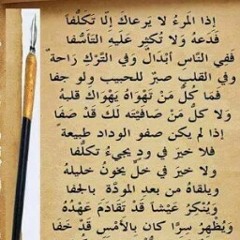 إذا المَرءُ لا يَرعاكَ إلّا تَكلُّفاً
فَدَعهُ وَلا تُكثِر عَلَيهِ التَأَسُّفا
فَفِي النَّاسِ أبْدَالٌ وَفي التَّرْكِ رَاحةٌ
وفي القلبِ صبرٌ للحبيب ولو جفا
فَمَا كُلُّ مَنْ تَهْوَاهُ يَهْوَاكَ قلبهُ
وَلا كلُّ مَنْ صَافَيْتَه لَكَ قَدْ صَفَا
إذا لم يكن صفو الوداد طبيعةً
فلا خيرَ في ودٍ يجيءُ تكلُّفا
ولا خيرَ في خلٍّ يخونُ خليلهُ
ويلقاهُ من بعدِ المودَّةِ بالجفا
وَيُنْكِرُ عَيْشاً قَدْ تَقَادَمَ عَهْدُهُ
وَيُظْهِرُ سِرًّا كان بِالأَمْسِ قَدْ خَفَا